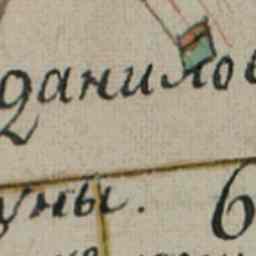 данилов
уны. 6